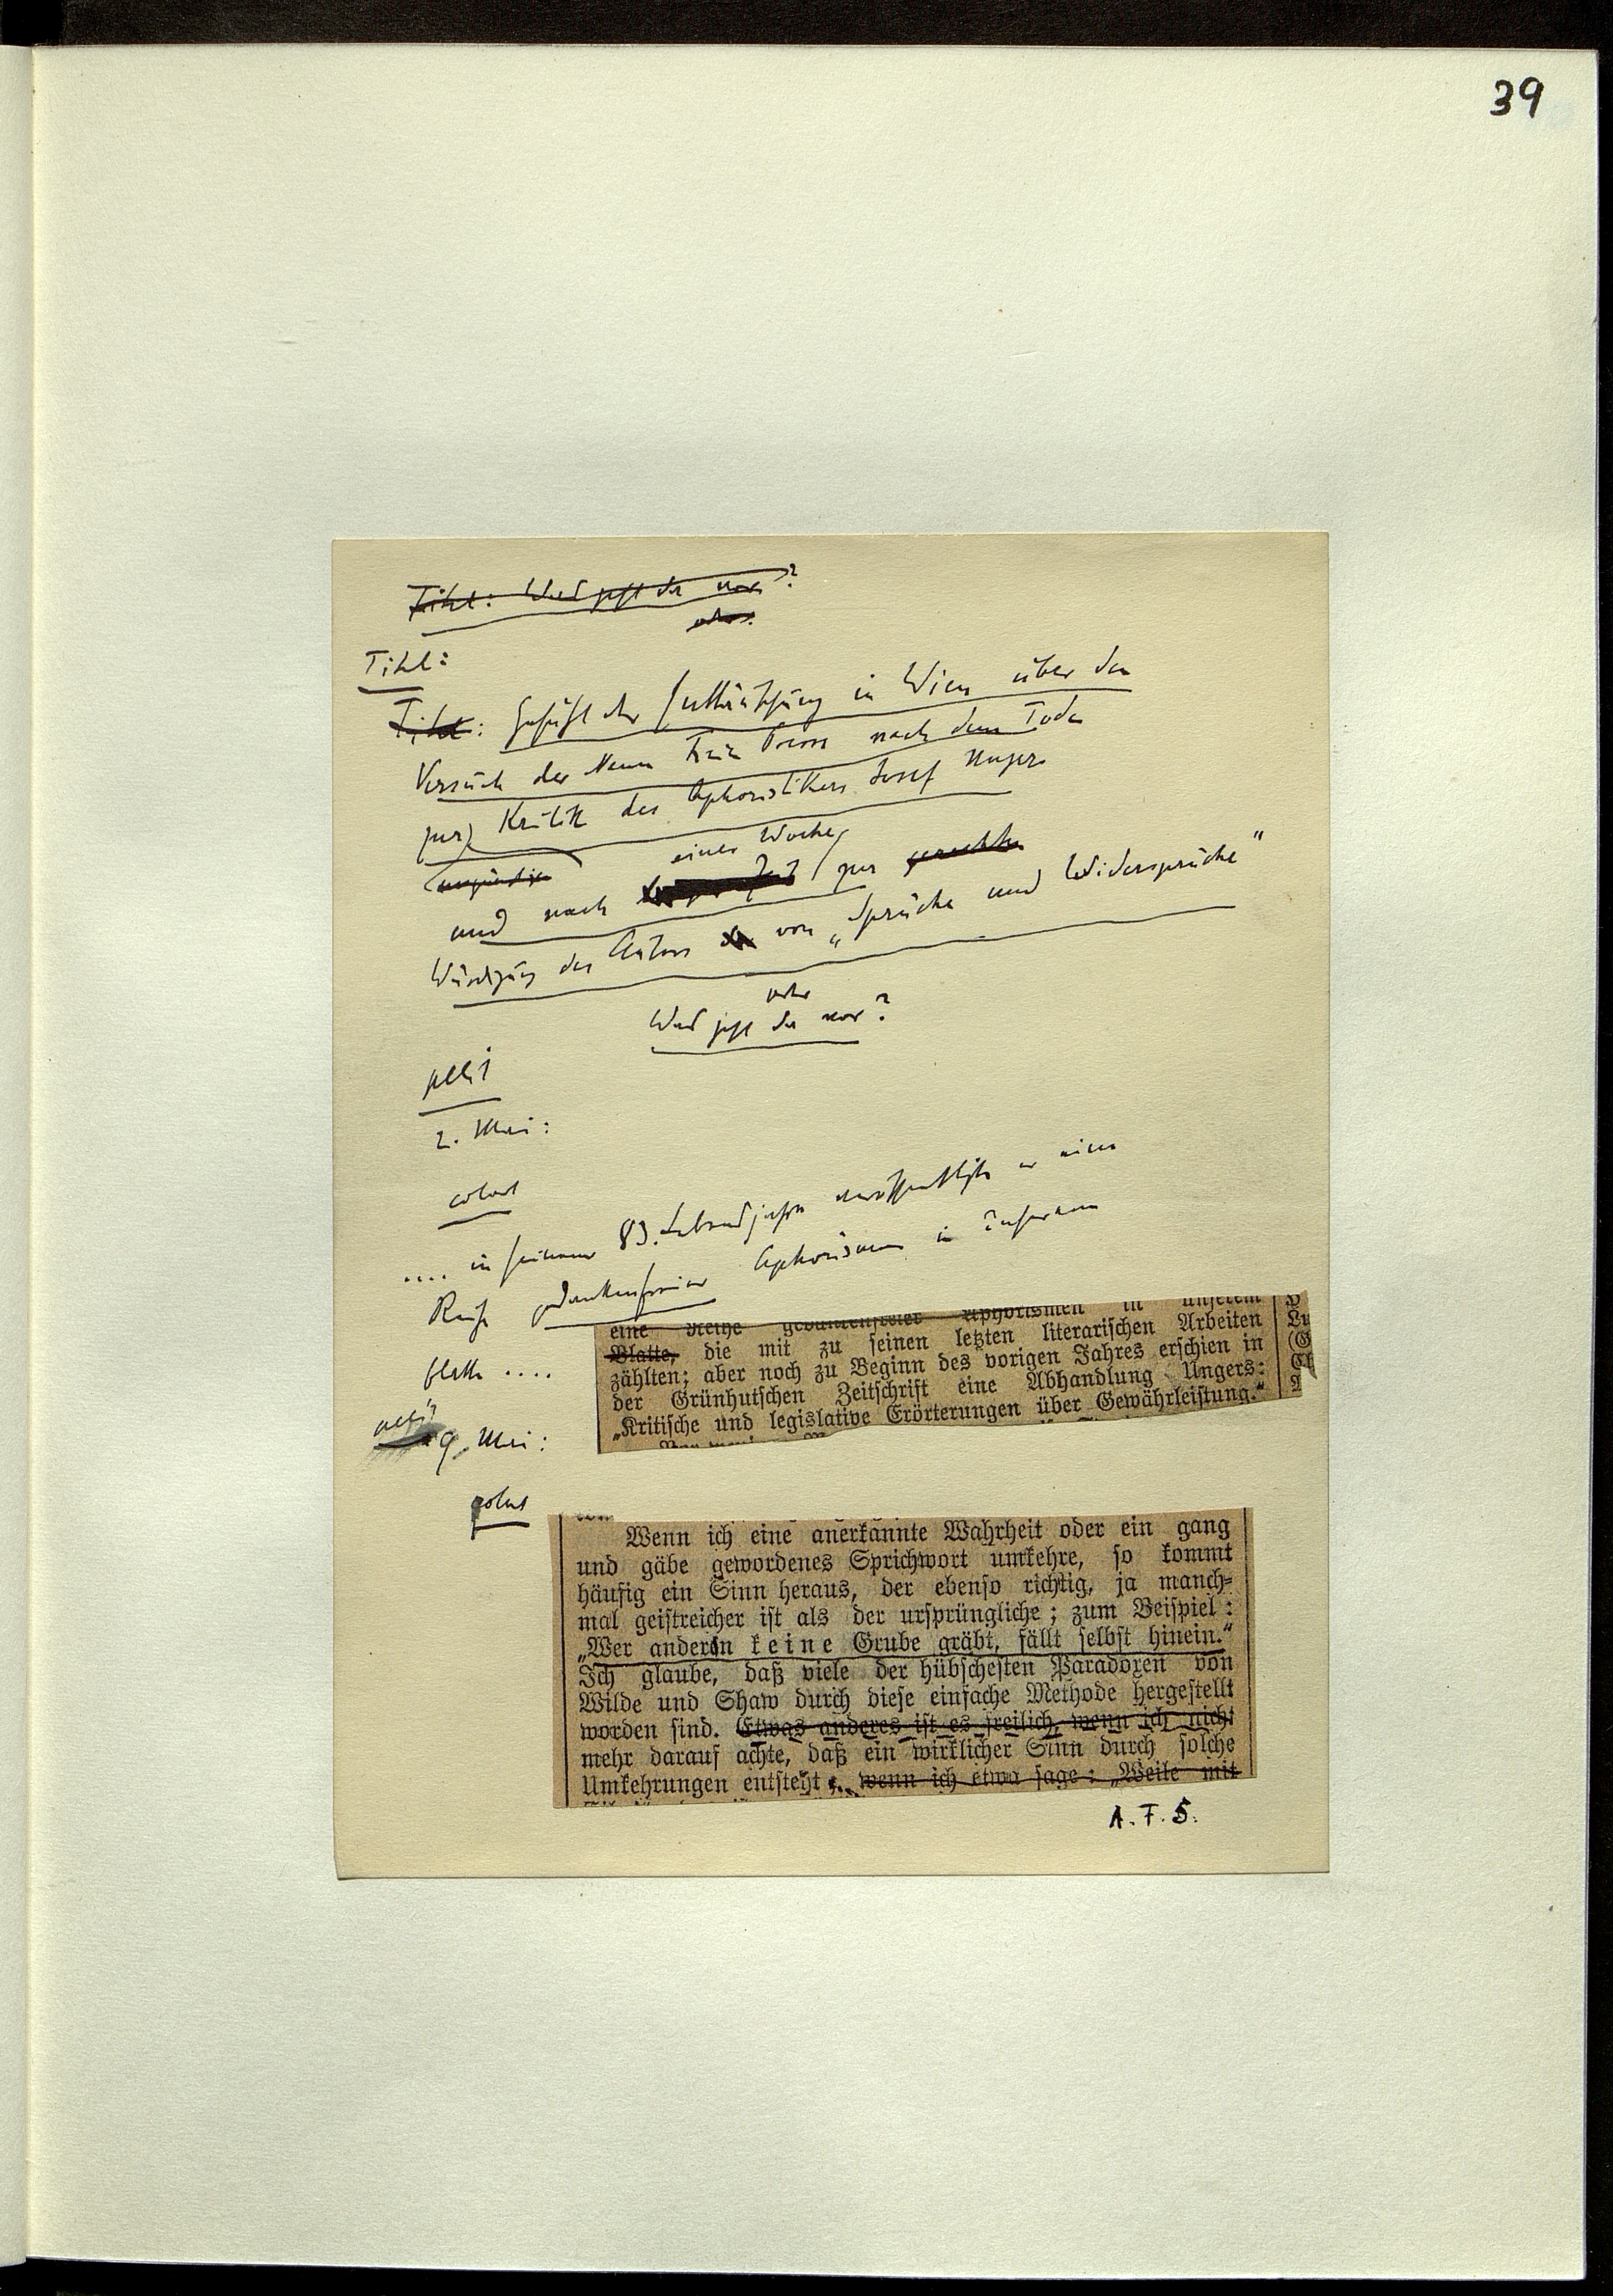 39
Titel: Was geht da vor?
oder:
Titel:
Titel: Gefühl der Enttäuschung in Wien über den
Versuch der Neuen Freien Presse nach dem Tode
zur Kritik des Aphoristikers Josef Unger
ungünstigen
einer Woche
und nach zur gerechten
Würdigung des Autors von „Sprüche und Widersprüche“
oder
Was geht da vor?
petit
2. Mai:
colonel
.... in seinem 83. Lebensjahre veröffentlichte er eine
Reihe gedankenfreier Aphorismen in unserem
eine Reihe gedankenfreier Aphorismen in unserem
Blatte, die mit zu seinen letzten literarischen Arbeiten
Blatte ....
zählten; aber noch zu Beginn des vorigen Jahres erschien in
der Grünhutschen Zeitschrift eine Abhandlung Ungers:
„Kritische und legislative Erörterungen über Gewährleistung.“
petit
9. Mai:
colonel
Wenn ich eine anerkannte Wahrheit oder ein gang
und gäbe gewordenes Sprichwort umkehre, so kommt
häufig ein Sinn heraus, der ebenso richtig, ja manch-
mal geistreicher ist als der ursprüngliche; zum Beispiel:
„Wer andern keine Grube gräbt, fällt selbst hinein.“
Ich glaube, daß viele der hübschesten Paradoxen von
Wilde und Shaw durch diese einfache Methode hergestellt
worden sind. Etwas anderes ist es freilich, wenn ich nicht
mehr darauf achte, daß ein wirklicher Sinn durch solche
Umkehrungen entsteht, wenn ich etwa sage: „Weile mit
A. F. S.